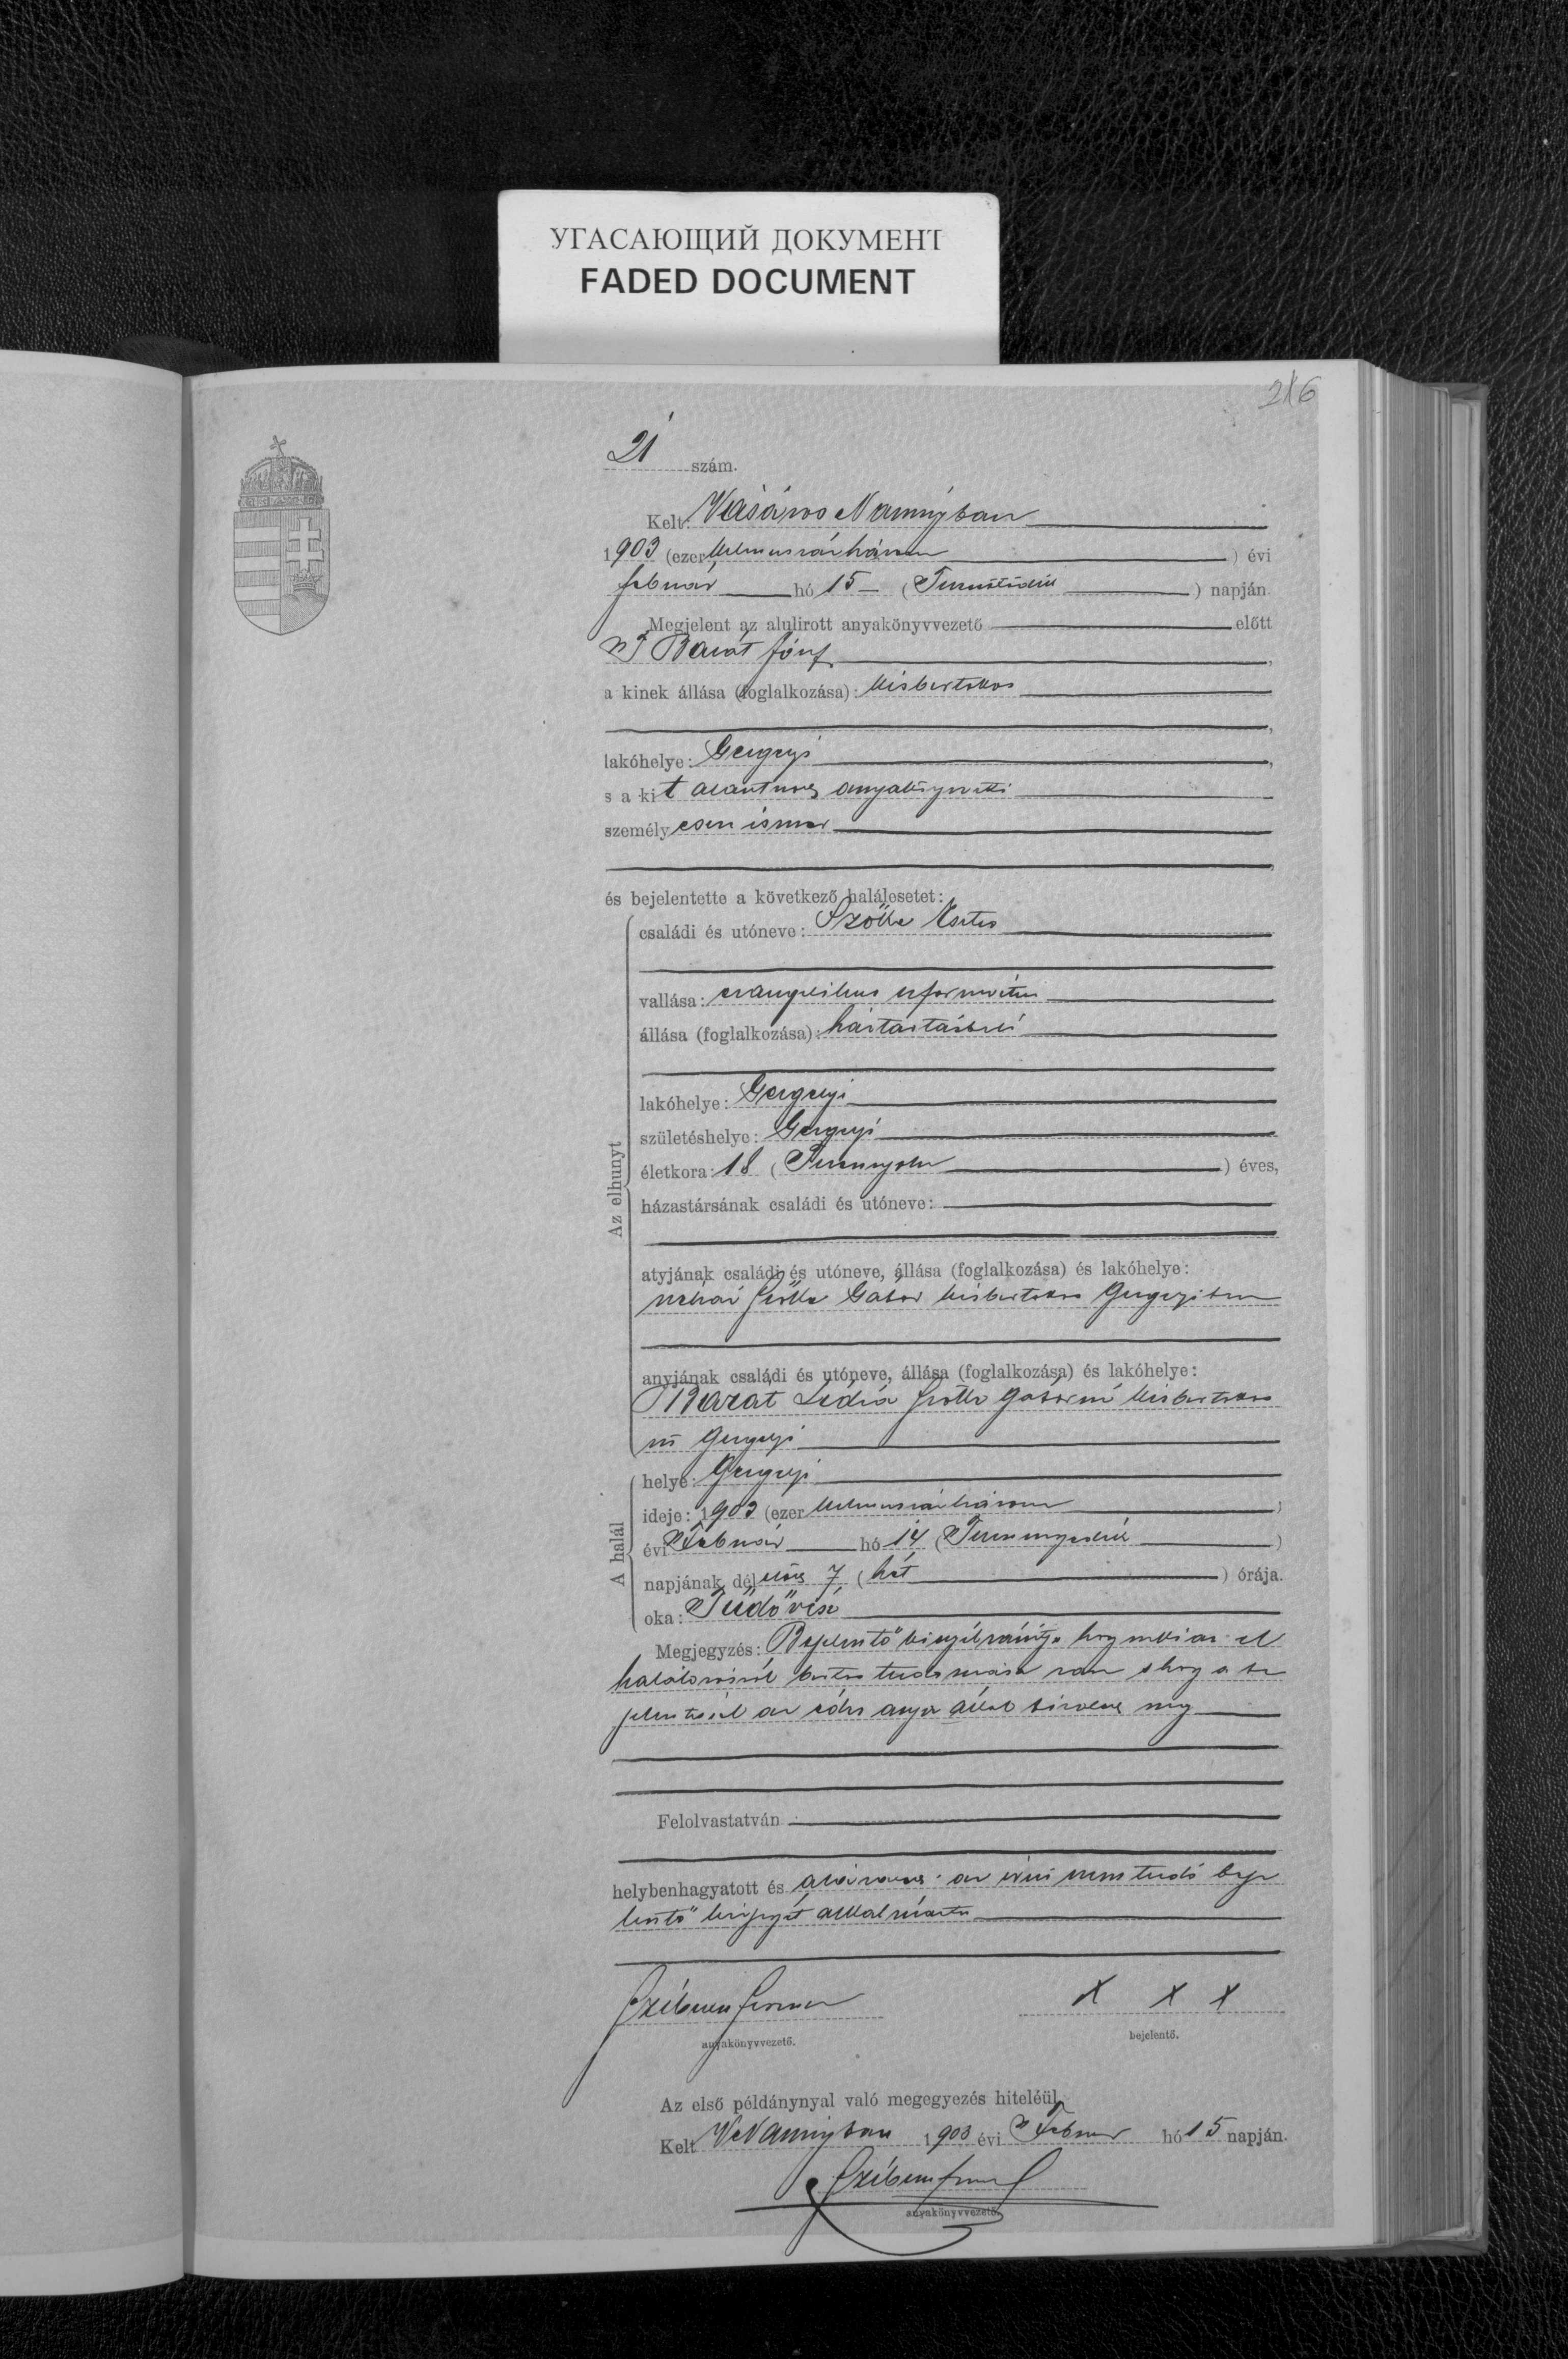 УГАСАЮЩИЙ ДОКУМЕНТ
FADED DOCUMENT
216
21 szám.
Kelt: Vásáros Naményban
1903 (ezer kilenczszázhárom ) évi
február hó 15 ( Tizenötödik ) napján.
Megjelent az alulirott anyakönyvvezető előtt
Barát József,
a kinek állása (foglalkozása): kisbirtokos
lakóhelye: Gergelyi,
s a kit anyakönyvvezető
személyesen ismer
és bejelentette a következő halálesetet:
Az elhunyt
családi és utóneve: Szőke Eszter
vallása: evangelikus református
állása (foglalkozása): háztartásbeli
lakóhelye: Gergelyi
születéshelye: Gergelyi
életkora: 18 ( Tizennyolcz ) éves,
házastársának családi és utóneve:
atyjának családi és utóneve, állása (foglalkozása) és lakóhelye:
néhai Szőke Gábor kisbirtokos Gergelyiben
anyjának családi és utóneve, állása (foglalkozása) és lakóhelye:
Barát Lidia Szőke Gáborné kisbirtokos
nő Gergelyi
A halál
helye: Gergelyi
ideje: 1903 (ezer kilenczszázhárom )
évi Február hó 14 ( Tizennegyedik )
napjának délelőtt 7 ( hét ) órája.
oka: Tüdővész
Megjegyzés: Bejelentő kinyilvánítja hogy nékie az el
halálozásról biztos tudomása van s hogy a be
jelentéssel az anya által bízatott meg
Felolvastatván
helybenhagyatott és aláíratott az írni nem tudó beje
lentő kézjegyét alkalmazta
X X X
anyakönyvvezető.
bejelentő.
Az első példánynyal való megegyezés hiteléül.
Kelt V Naményban 1903 évi Február hó 15 napján.
anyakönyvvezető.